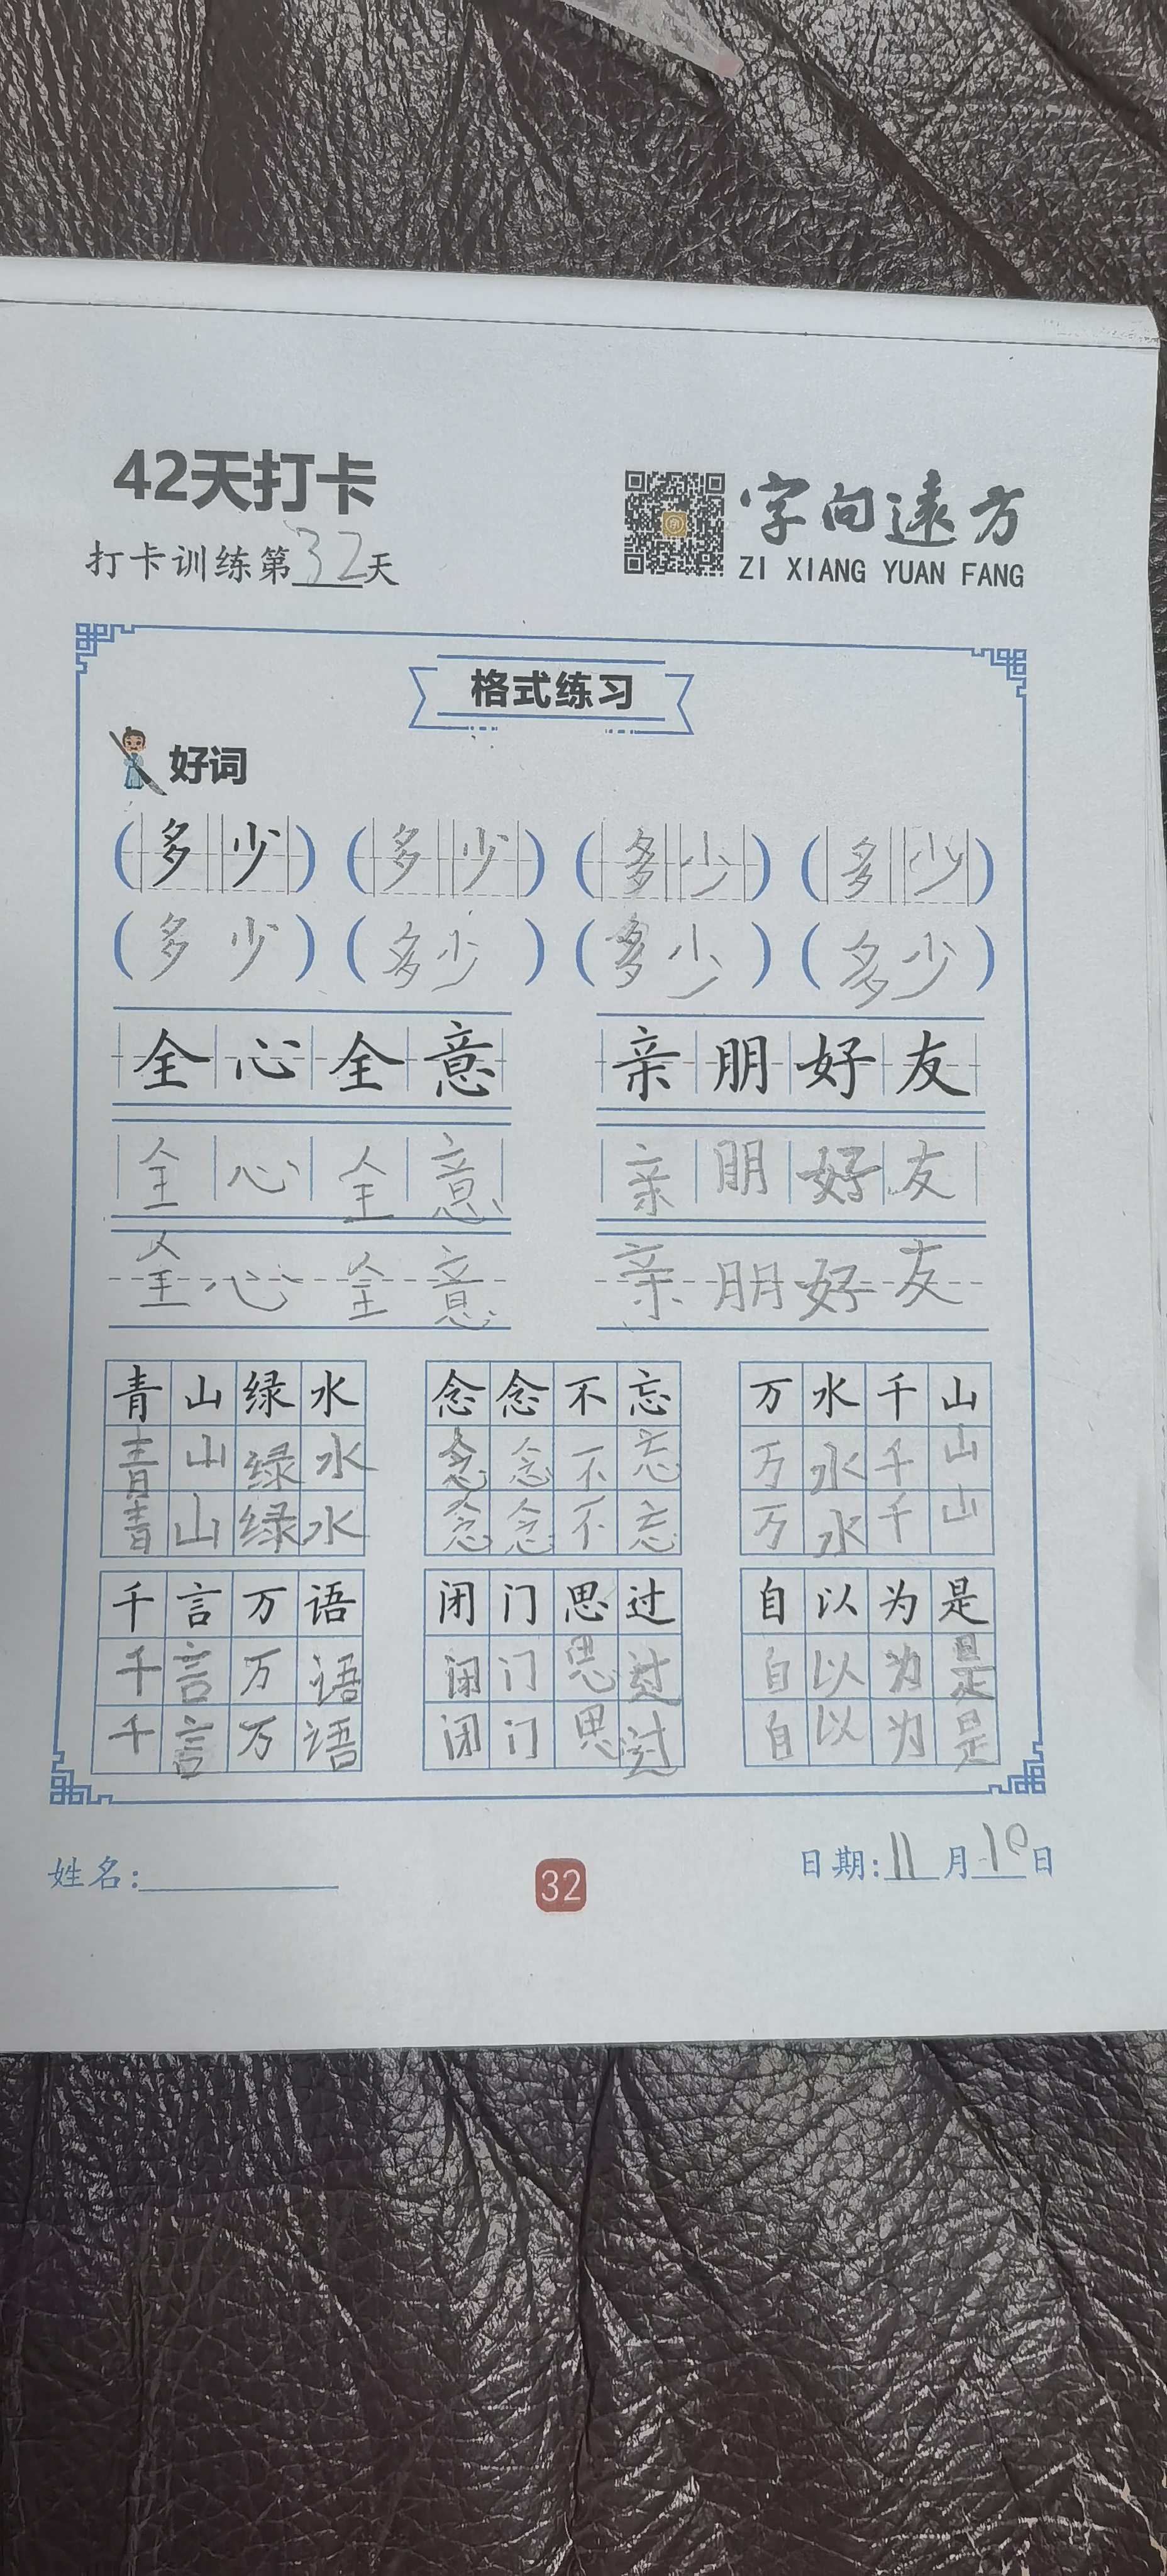 42天打卡
打卡训练第32天
字向远方
ZI XIANG YUAN FANG
格式练习
好词
(多少) (多少) (多少) (多少)
(多少) (多少) (多少) (多少)
全心全意 亲朋好友
全心全意 亲朋好友
全心全意 亲朋好友
青山绿水 念念不忘 万水千山
青山绿水 念念不忘 万水千山
青山绿水 念念不忘 万水千山
千言万语 闭门思过 自以为是
千言万语 闭门思过 自以为是
千言万语 闭门思过 自以为是
姓名: 32 日期:11月10日